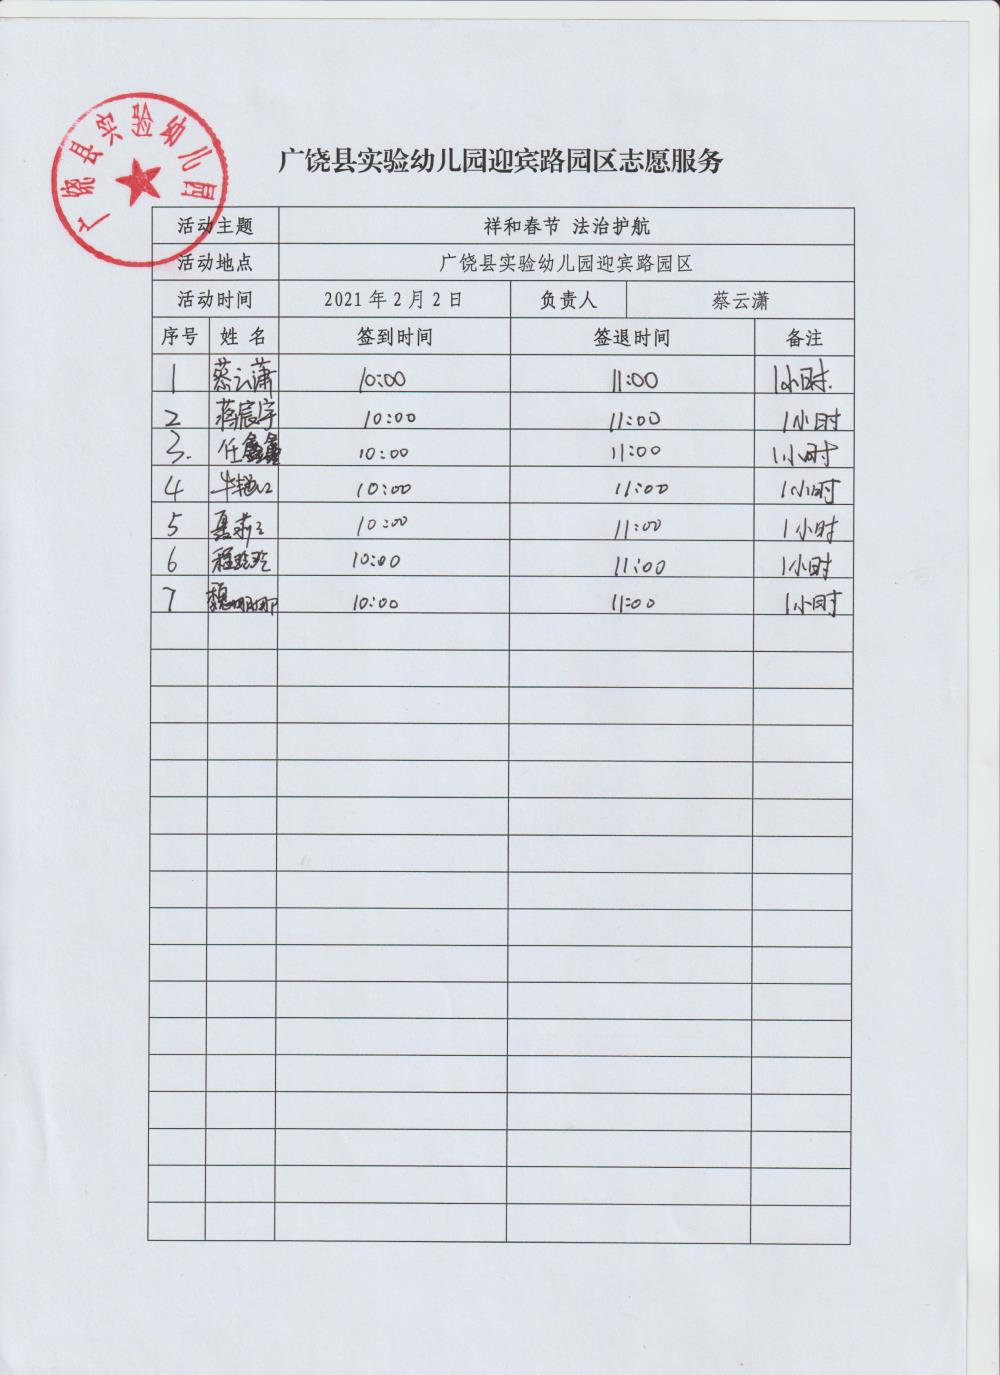 广饶县实验幼儿园
广饶县实验幼儿园迎宾路园区志愿服务
活动主题 祥和春节 法治护航
活动地点 广饶县实验幼儿园迎宾路园区
活动时间 2021年2月2日 负责人 蔡云潇
序号 姓名 签到时间 签退时间 备注
1 蔡云潇 10:00 11:00 1小时.
2 蒋宸宇 10:00 11:00 1小时
3. 任鑫鑫 10:00 11:00 1小时
4 10:00 11:00 1小时
5 10:00 11:00 1小时
6 程玲玲 10:00 11:00 1小时
7 魏娜娜 10:00 11:00 1小时